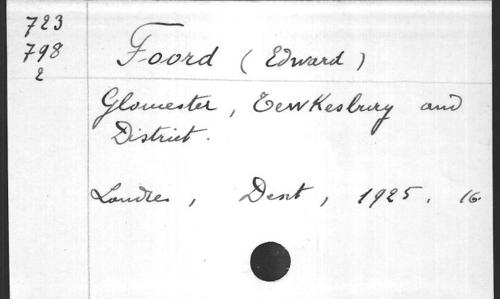 723
798
2
Foord (Edward)
Gloucester, Tewkesbury and
District.
Londres, Dent, 1925. 16.